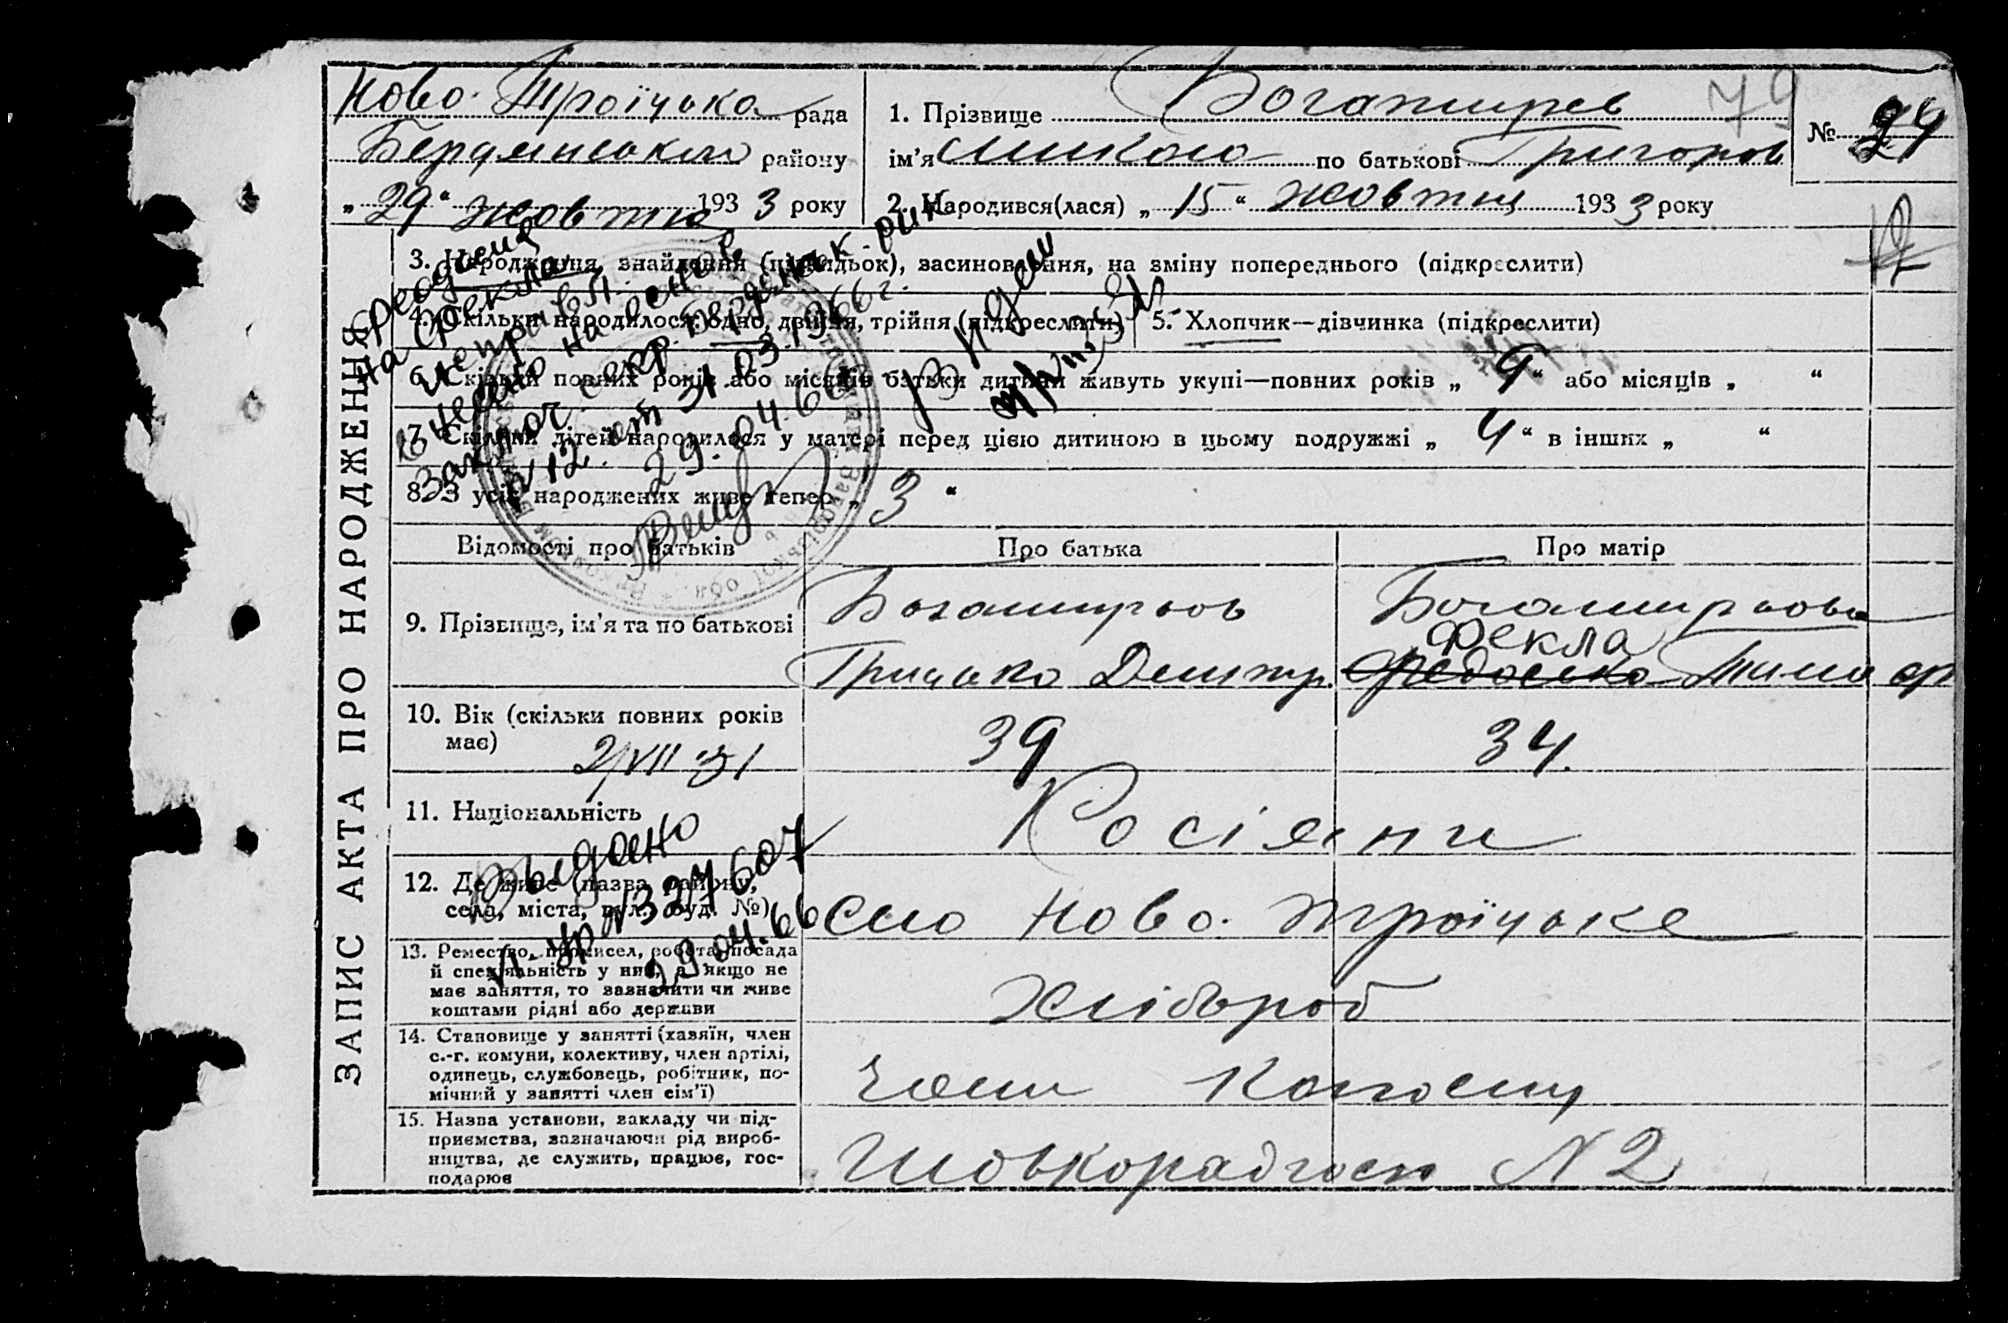 ЗАПИС АКТА ПРО НАРОДЖЕННЯ
Ново-Троїцька рада
Бердянського району
„ 29 “ жовтня 1933 року
79
№ 24
1. Прізвище Богатирев
ім’я Микола по батькові Григоров
2. Народився(лася) „ 15 “ жовтня 1933 року
3. Народження, знайдення (підкидьок), засиновлення, на зміну попереднього (підкреслити)
4. Скільки народилося: одно, двійня, трійня (підкреслити)
5. Хлопчик—дівчинка (підкреслити)
6. Скільки повних років або місяців батьки дитини живуть укупі—повних років „ 9 “ або місяців „ “
7. Скільки дітей народилося у матері перед цією дитиною в цьому подружжі „ 4 “ в інших „ “
8. З усіх народжених живе тепер „ 3 “
на Фекла
исправл.
внесено на основ
заключ. окр. Бердянск. рик
№ 12 от 31.03.1966 г.
29.04.66
Відомості про батьків
Про батька
Про матір
9. Прізвище, ім’я та по батькові
Богатирьов
Грицько Дмитр.
Богатирьова
Фекла
Тимоф
10. Вік (скільки повних років має)
2/VII 51
39
34.
11. Національність
Росіяни
Выдано
№ 327607
29.04.66
12. Де живе (назва району, села, міста, вул., буд. №)
село Ново-Троїцьке
13. Ремество, промисел, робота, посада
й спеціяльність у ній, а якщо не
має заняття, то зазначити чи живе
коштами рідні або держави
Хлібороб
14. Становище у занятті (хазяїн, член
с.-г. комуни, колективу, член артілі,
одинець, службовець, робітник, по-
мічний у занятті член сім’ї)
Член Колгоспу
15. Назва установи, закладу чи під-
приємства, зазначаючи рід вироб-
ництва, де служить, працює, гос-
подарює
Шовкорадгосп № 2